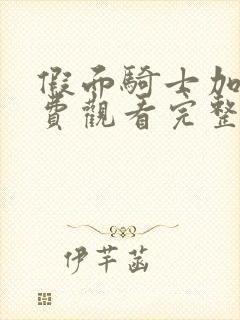 假面騎士加
費觀看完整
伊芊菡